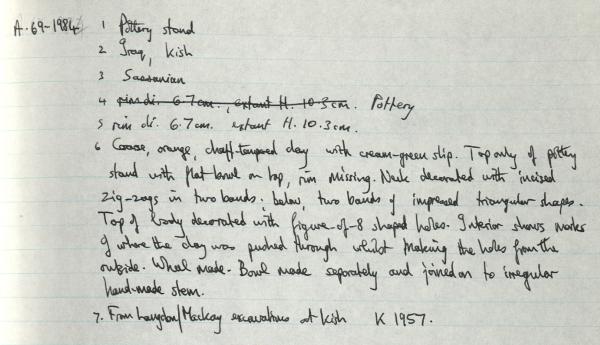 A.69-1984 1 Pottery stand
2 Iraq, Kish
3 Sassanian
4 rim di. 6.7cm., extant H. 10.3cm. Pottery
5 rim di. 6.7cm. extant H. 10.3cm.
6 Coarse, orange chaff-tempered clay with cream-green slip. Top only of pottery
stand with flat bowl on top, rim missing. Neck decorated with incised
zig-zags in two bands; below, two bands of impressed triangular shapes.
Top of body decorated with figure-of-8 shaped holes. Interior shows marks
of where the clay was pushed through whilst making the holes from the
outside. Wheel made. Bowl made separately and joined on to irregular
hand-made stem.
7. From Langdon/Mackay excavations at Kish K 1957.